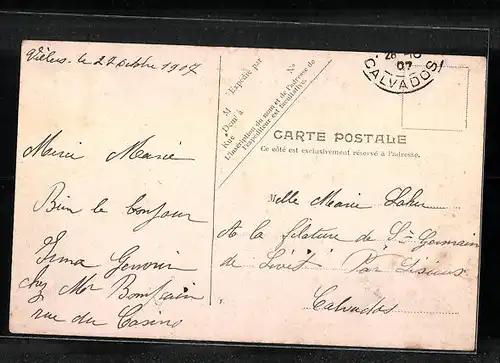 le 22 octobre 1907
Merci Marie
Bien le bonjour
Irma
chez Mr
rue du Casino
M
Expédié par
Nº
Demt à
Rue
L'inscription du nom et de l'adresse de
l'expéditeur est facultative.
CALVADOS
07
CARTE POSTALE
Ce côté est exclusivement réservé à l'adresse.
Melle Marie
A la filature de St Germain
de Livet Par Lisieux
Calvados